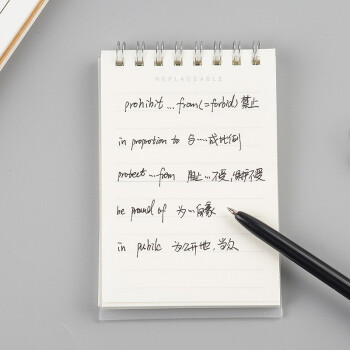 REPLACEABLE
prohibit ... from (=forbid) 禁止
in proportion to 与……成比例
protect ... from 阻止…不受, 保护不受
be proud of 为…自豪
in public 公开地, 当众